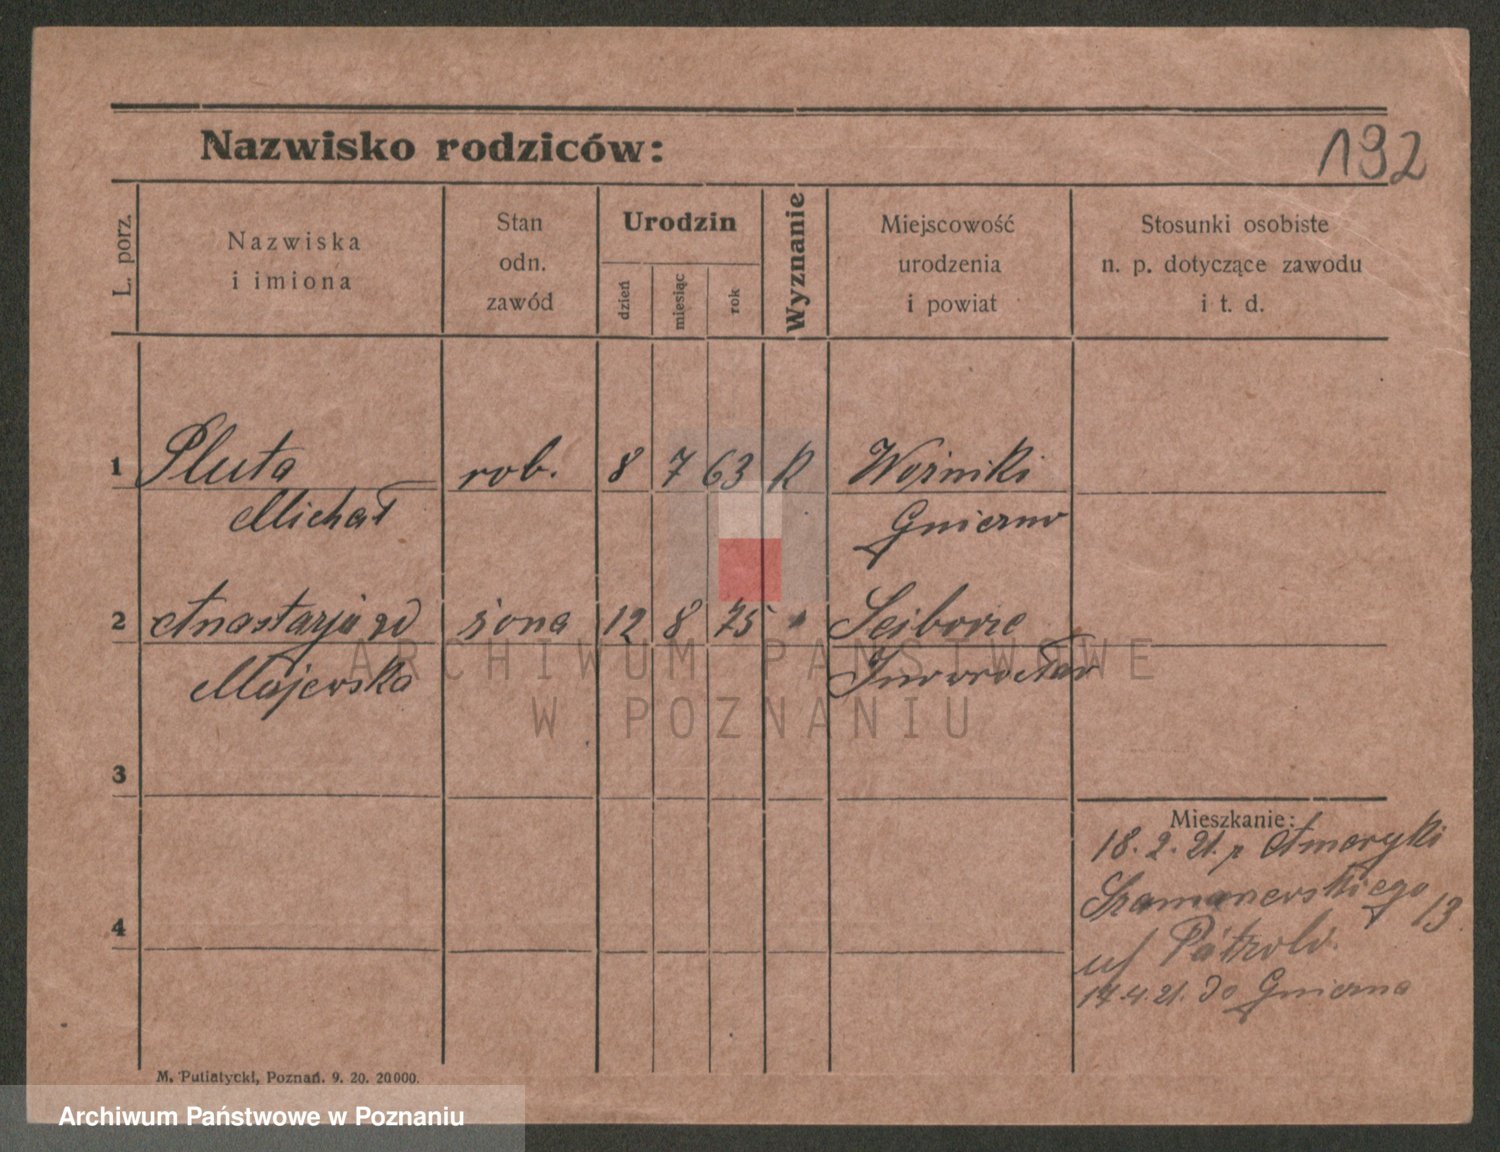 192
Nazwisko rodziców:
L. porz.
Nazwiska
i imiona
Stan
odn.
zawód
Urodzin
dzień
miesiąc
rok
Wyznanie
Miejscowość
urodzenia
i powiat
Stosunki osobiste
n. p. dotyczące zawodu
i t. d.
1 Pluta rob. 8 7 63 K Woźniki
Michał Gniezno
2 Anastazja zd żona 12 8 75 "
Majewska Inowrocław
3
Mieszkanie:
18. 2. 21. z Ameryki
13
4
ul
14.4.21. do Gniezna
M. Putiatycki, Poznań. 9. 20. 20000.
ARCHIWUM PAŃSTWOWE
W POZNANIU
Archiwum Państwowe w Poznaniu